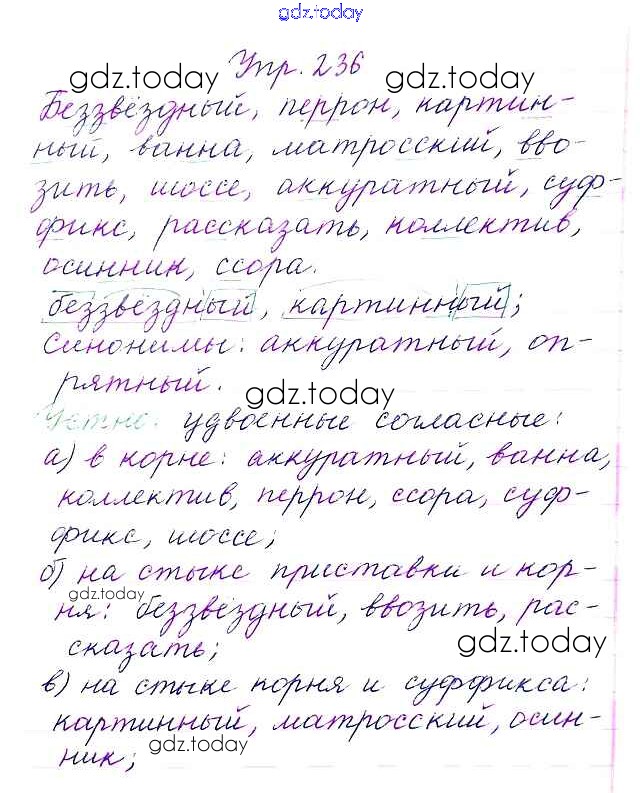 gdz.today
Упр. 236
gdz.today gdz.today
Беззвёздный, перрон, картин-
ный, ванна, матросский, вво-
зить, шоссе, аккуратный, суф-
фикс, рассказать, коллектив,
осинник, ссора.
беззвёздный, картинный;
Синонимы: аккуратный, оп-
рятный.
gdz.today
Устно: удвоенные согласные:
а) в корне: аккуратный, ванна,
коллектив, перрон, ссора, суф-
фикс, шоссе;
б) на стыке приставки и кор-
gdz.today
ня: беззвёздный, ввозить, рас-
сказать;
gdz.today
в) на стыке корня и суффикса:
картинный, матросский, осин-
gdz.today
ник;